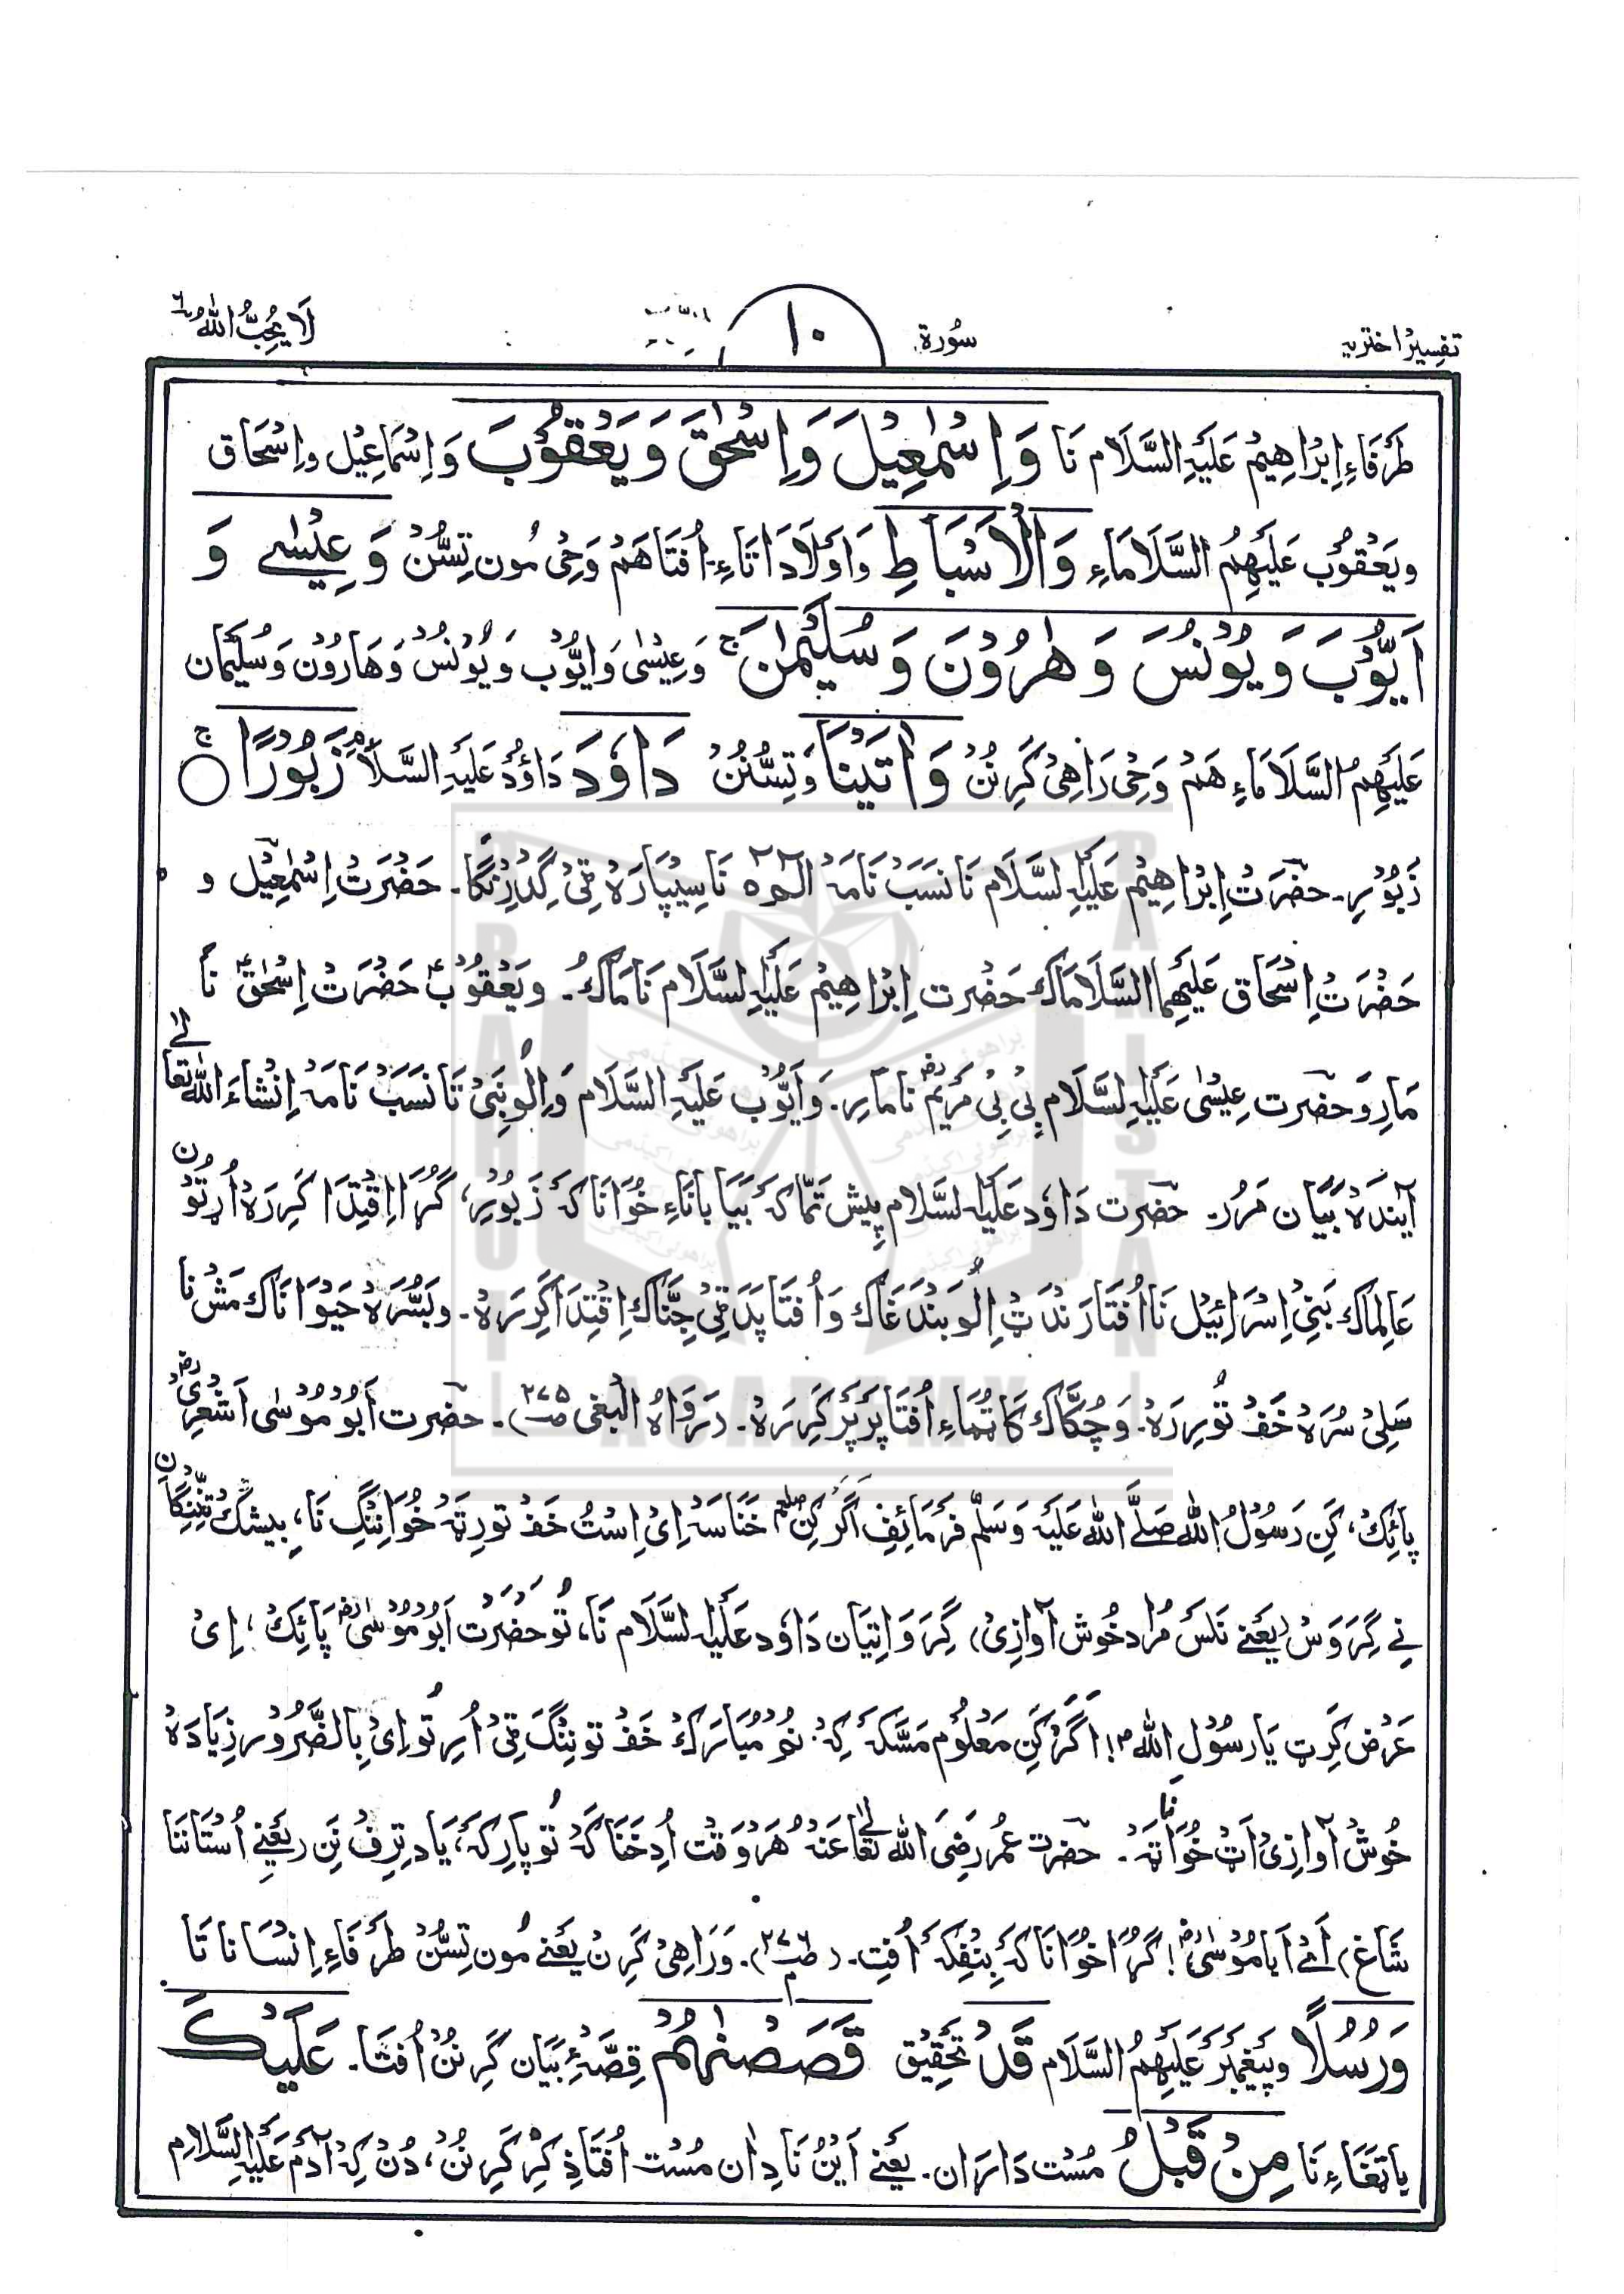 تفسیر اختریہ
سُورة
۱۰
لَا یُحِبُّ اللّٰهُ ٦
طَرَفَاءِ اِبْرَاهِیْمُ عَلَیْهِ السَّلَام نَا وَاِسْمٰعِیْلَ وَاِسْحٰقَ وَیَعْقُوْبَ وَاِسْمَاعِیْل واِسْحَاق
ویَعْقُوْب عَلَیْهِمُ السَّلَامَاءِ وَالْاَسْبَاطِ وَاَوْلَادَاتَاءِ۔ اُفتَاهَمْ وَحِی مُون تِسُّنْ وَعِیْسٰے وَ
اَیُّوْبَ وَیُوْنُسَ وَهٰرُوْنَ وَسُلَیْمٰنَ ج وَعِیْسٰی وَایُّوْب وَیُوْنُسْ وَهَارُوْن وَسُلَیْمَان
عَلَیْهِمُ السَّلَامَاءِ هَمْ وَحِی رَاهِیْ کَرِنُنْ وَاٰتَیْنَا وَتِسُّنُنْ دَاوٗدَ دَاوُدْ عَلَیْهِ السَّلَام زَبُوْرًا ج
زَبُوْرِ۔ حضرَتْ اِبْرَاهِیْم عَلَیْهِ السَّلَام نَا نَسَبْ نَامَہْ نَا سِیْپَارَہْ ٹِیْ گِدْرِنْگَا۔ حَضْرَتْ اِسْمٰعِیْل و
حَضْرَتْ اِسْحَاق عَلَیْهِمَا السَّلَامَاک حَضْرت اِبْرَاهِیْم عَلَیْهِ السَّلَام نَامَاکُ۔ ویَعْقُوْبؑ حَضْرَتْ اِسْحٰقؑ نَا
مَارِ وَحضرت عِیْسٰی عَلَیْهِ السَّلَام بِیْ بِیْ مَرْیَم نَا مَارِ۔ وَاَیُّوْب عَلَیْهِ السَّلَام وَاِلُو نَبِیْ تَا نَسَبْ نَامَہْ اِنْشَاءَ اللّٰه تعالٰے
آیَندَہْ بَیَان مَرُر۔ حضرت دَاوٗد عَلَیْهِ السَّلَام پِیش تَمَّا کہَ بَیَابَانَاءِ خُوَانَا کہَ زَبُوْرِ، گُڑَا اِقْتِدَا کَرِرَہْ اُرتُوْن
عَالِمَاک بَنِیْ اِسْرَائِیْل نَا اُفْتَا رَنْدَٹْ اِلُو بَنْدَغَاک وَاُفتَا پَدَٹِیْ جِنَّاک اِقْتِدَا کَرِرَہْ۔ وبَسُّرَہْ حَیْوَانَاک مَشْ نا
سَلِیْ سُرَہْ خَفْ تُوْرِرَہْ۔ وَچُکَّاک کَاٹُمَاءِ اُفتَا پَرْ پَرْ کَرِرَہْ۔ (رَوَاہُ البغی صـ۲۷۵)۔ حضرت اَبُوْ مُوْسٰی اَشْعَرِیْ رض
پَائِکْ، کَنِ رَسُوْلُ اللّٰه صَلَّے اللّٰه عَلَیْهِ وَسَلَّم فَرْمَائِف اَگَر کَنِ خَنَاسَہْ اِیْ اِسْتُ خَفْ تورِتَہْ خُوَانِنْگ نَا، بِیشَک تِنِنْگَان
نِے گِرَوَسْ (یَعْنے نَلَسْ مُرَاد خُوش آوازِیْ) گِرَوَاتِیَان دَاوٗد عَلَیْهِ السَّلَام نَا، تُو حَضْرَتْ اَبُوْ مُوْسٰی رض پَائِکْ، اِیْ
عَرْض کَرِٹ یَا رسُوْلِ اللّٰه! اَگَرْ کَنِ مَعْلُوْم مَسَّکہْ کِہْ: نُمْ مُبَارَکْ خَفْ تونِنْگَ ٹِیْ اُرِ تُو اِیْ بِالضَّرُوْر زِیَادَہْ
خُوشْ آوازِیْ اَٹْ خُوَانَاٹَہْ۔ حضرت عُمَر رَضِیَ اللّٰه تعالٰے عَنْہُ هَرْ وَقتْ اُدِ خَنَاکَہْ تُو پَارِکہَ، یَاد تِرِفْ نَنِ (یَعْنے اُسْتَانَنَا
شَاغ) اَے اَبَامُوْسٰی رض! گُڑَا خُوَانَا کہَ بِنْفِکہَ اُفِت۔ (صـ۲۷۶)۔ وَرَاهِیْ کَرِنْ یَعْنے مُون تِسُّنْ طَرَفَاءِ اِنْسَانَاتَا
وَرُسُلًا وپَیْغَمْبَرْ عَلَیْهِمُ السَّلَام قَدْ تحَقِیْق قَصَصْنٰهُمْ قِصَّۂِ بَیَان کَرِنُنْ اُفتَا۔ عَلَیْكَ
پاتَغَاءِ نَا مِنْ قَبْلُ مُسْت دَاسَان۔ یَعْنے اَیْنُ نَادِان مُسْت اُفتَا ذِکْر کَرِنُنْ، دُنْ کِہْ آدَم عَلَیْهِ السَّلَام
BRAHUI ACADEMY PAKISTAN